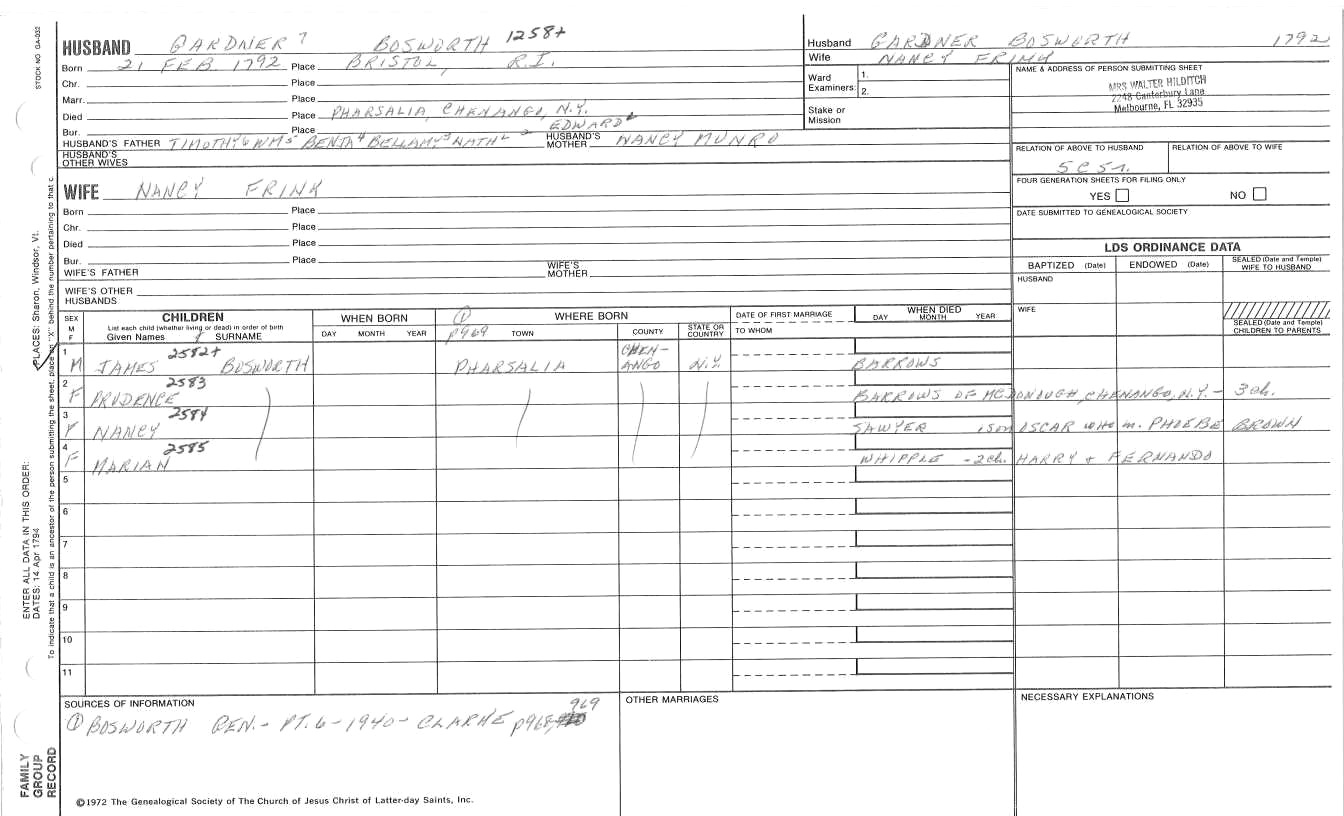 STOCK NO GA-032
HUSBAND GARDNER 7 BOSWORTH 1258+
Born 21 FEB 1792 Place BRISTOL, R.I.
Chr. Place
Marr. Place
Died Place PHARSALIA, CHENANGO, N.Y.
Bur. Place
HUSBAND'S FATHER TIMOTHY 6 WM 5 BENJA 4 BELLAMY 3 NATHL 2 EDWARD 1 HUSBAND'S MOTHER NANCY MUNRO
HUSBAND'S OTHER WIVES
WIFE NANCY FRINK
Born Place
Chr. Place
Died Place
Bur. Place
WIFE'S FATHER WIFE'S MOTHER
WIFE'S OTHER HUSBANDS
Husband GARDNER BOSWORTH 1792
Wife NANCY FRINK
Ward Examiners: 1. 2.
Stake or Mission
NAME & ADDRESS OF PERSON SUBMITTING SHEET
MRS WALTER HILDITCH
2248 Canterbury Lane
Melbourne, FL 32935
RELATION OF ABOVE TO HUSBAND RELATION OF ABOVE TO WIFE
FOUR GENERATION SHEETS FOR FILING ONLY
YES NO
DATE SUBMITTED TO GENEALOGICAL SOCIETY
LDS ORDINANCE DATA
BAPTIZED (Date) ENDOWED (Date) SEALED (Date and Temple) WIFE TO HUSBAND
HUSBAND
WIFE
SEALED (Date and Temple) CHILDREN TO PARENTS
SEX M F
CHILDREN
List each child (whether living or dead) in order of birth
Given Names SURNAME
WHEN BORN
DAY MONTH YEAR
① WHERE BORN
p969 TOWN COUNTY STATE OR COUNTRY
DATE OF FIRST MARRIAGE
TO WHOM
WHEN DIED
DAY MONTH YEAR
1 M JAMES 2582+ BOSWORTH PHARSALIA CHEN-ANGO N.Y. BARROWS
2 F PRUDENCE 2583 BARROWS OF MCDONOUGH, CHENANGO, N.Y. - 3ch.
3 F NANCY 2584 SAWYER 1son OSCAR who m. PHOEBE BROWN
4 F MARIAN 2585 WHIPPLE - 2ch. HARRY + FERNANDO
5
6
7
8
9
10
11
SOURCES OF INFORMATION
① BOSWORTH GEN. - PT. 6 - 1940 - CLARKE p968, 969
OTHER MARRIAGES
NECESSARY EXPLANATIONS
©1972 The Genealogical Society of The Church of Jesus Christ of Latter-day Saints, Inc.
FAMILY GROUP RECORD
ENTER ALL DATA IN THIS ORDER:
DATES: 14 Apr 1794
PLACES: Sharon, Windsor, Vt.
To indicate that a child is an ancestor of the person submitting the sheet, place an "X" behind the number pertaining to that c